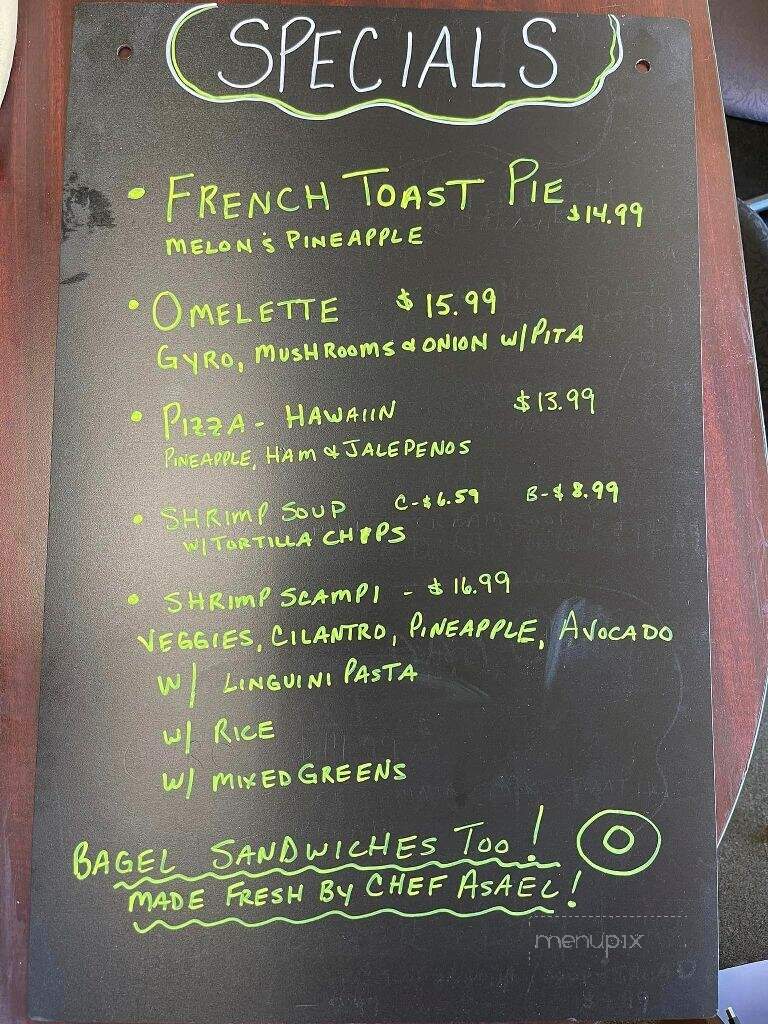 SPECIALS
• FRENCH TOAST PIE $14.99
MELON & PINEAPPLE
• OMELETTE $15.99
GYRO, MUSHROOMS & ONION W/PITA
• PIZZA - HAWAIIN $13.99
PINEAPPLE, HAM & JALEPENOS
• SHRIMP SOUP C-$6.59 B-$8.99
W/TORTILLA CHIPS
• SHRIMP SCAMPI - $16.99
VEGGIES, CILANTRO, PINEAPPLE, AVOCADO
W/ LINGUINI PASTA
W/ RICE
W/ MIXED GREENS
BAGEL SANDWICHES TOO!
MADE FRESH BY CHEF ASAEL!
menupix